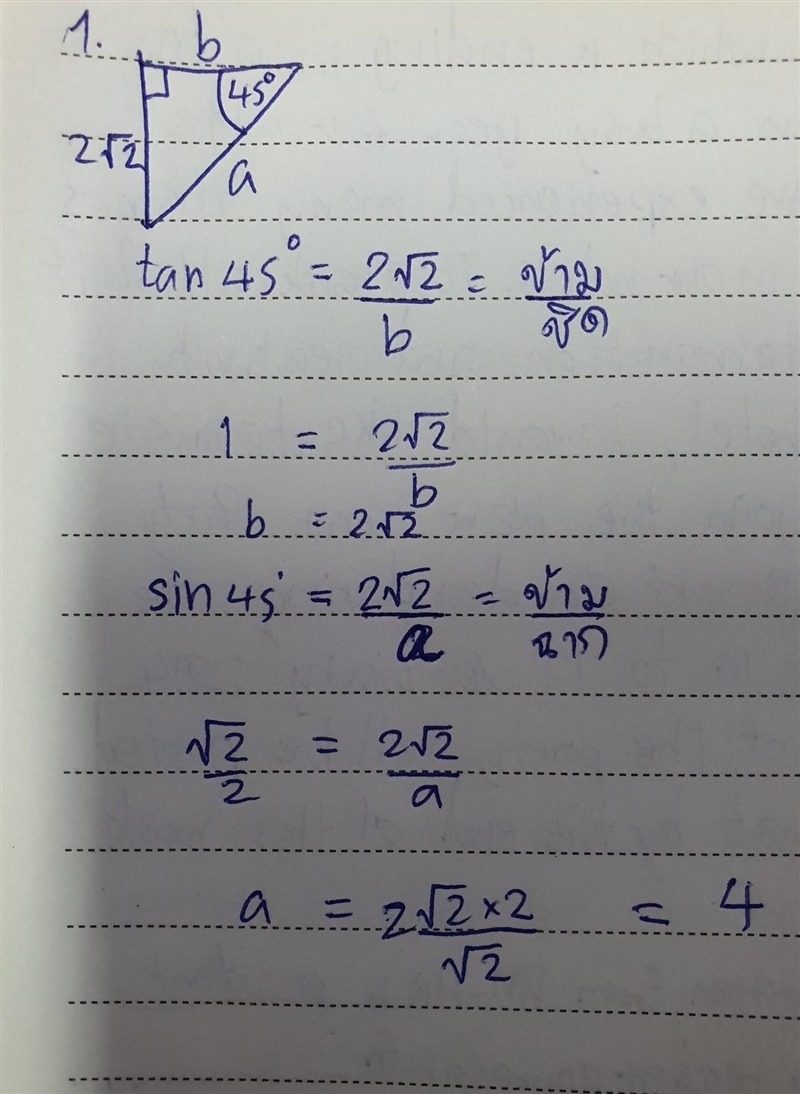 1.
b
45°
2√2
a
tan 45° = 2√2/b = ข้าม/ชิด
1 = 2√2/b
b = 2√2
sin 45° = 2√2/a = ข้าม/ฉาก
√2/2 = 2√2/a
a = 2√2×2/√2 = 4